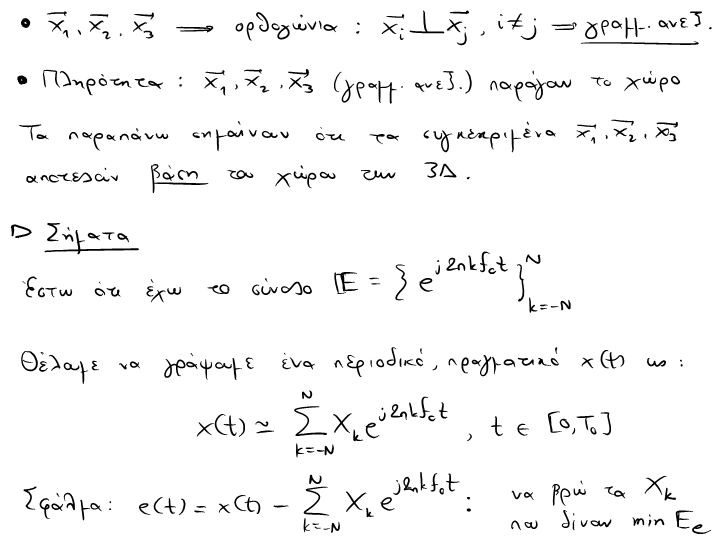 • x⃗₁, x⃗₂, x⃗₃ ⟹ ορθογώνια : x⃗ᵢ ⊥ x⃗ⱼ, i≠j ⟹ γραμμ. ανεξ.
• Πληρότητα : x⃗₁, x⃗₂, x⃗₃ (γραμμ. ανεξ.) παράγουν το χώρο
Τα παραπάνω σημαίνουν ότι τα συγκεκριμένα x⃗₁, x⃗₂, x⃗₃
αποτελούν βάση του χώρου των 3Δ.
▷ Σήματα
Έστω ότι έχω το σύνολο E = { e^{j2πkf₀t} }_{k=-N}^{N}
Θέλουμε να γράψουμε ένα περιοδικό, πραγματικό x(t) ως :
x(t) ≃ ∑_{k=-N}^{N} X_k e^{j2πkf₀t} , t ∈ [0,T₀]
Σφάλμα: e(t) = x(t) - ∑_{k=-N}^{N} X_k e^{j2πkf₀t} : να βρω τα X_k
που δίνουν min E_e